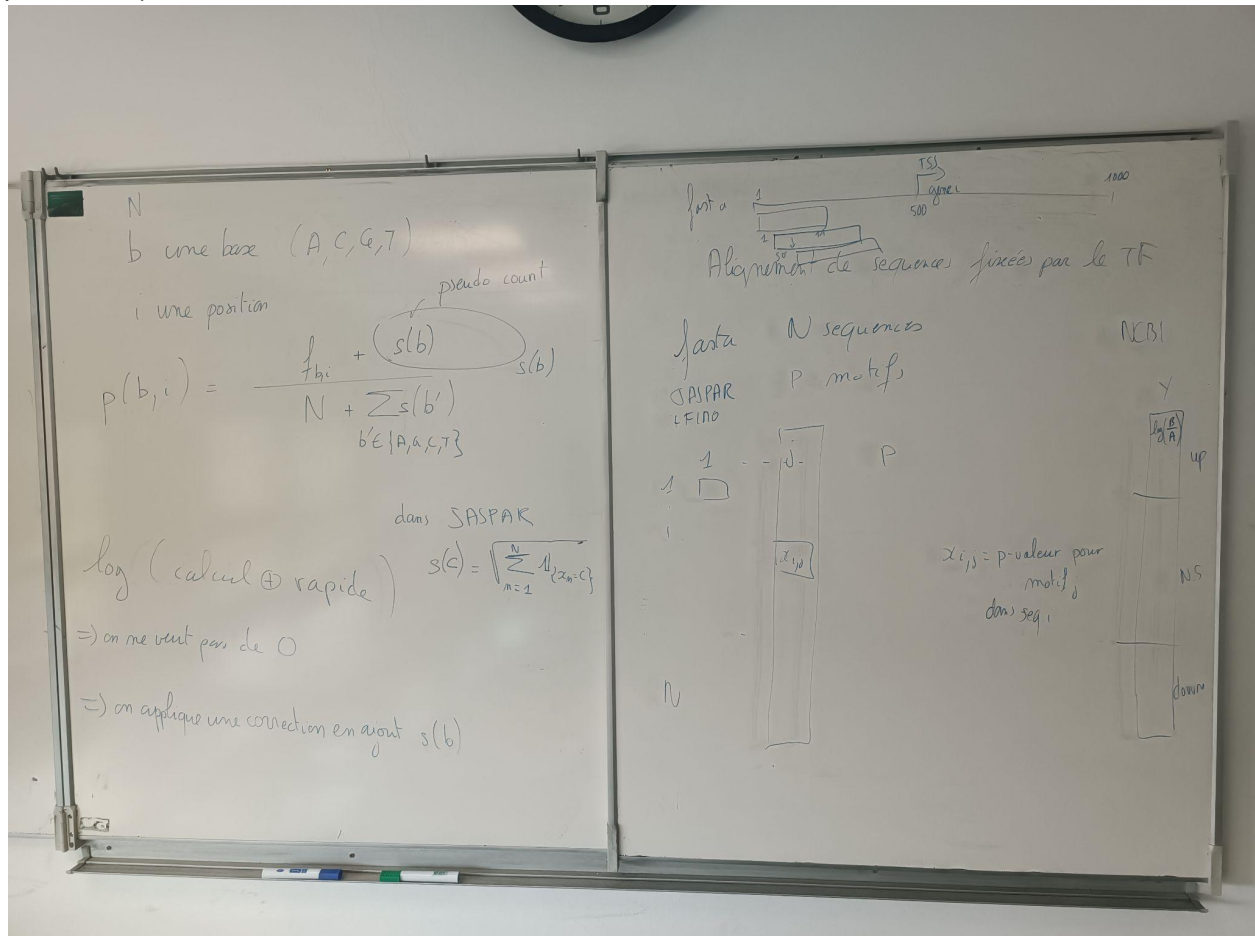 N
b une base (A, C, G, T)
i une position
pseudo count
p(b,i) = f_{b,i} + s(b) / N + Σ s(b')
b' ∈ {A,G,C,T}
s(b)
dans JASPAR
log (calcul ⊕ rapide)
s(C) = √ Σ_{n=1}^{N} 1_{x_n=C}
=> on ne veut pas de 0
=> on applique une correction en ajout s(b)
fasta 1 TSS gene i 1000
500
1
50
Alignement de sequences fixées par le TF
fasta N sequences NCBI
JASPAR P motifs
Y
log(B/A)
up
1 - - j - P
1
i
x_{i,j}
x_{i,j} = p-valeur pour
motif j
dans seq i
NS
N
down